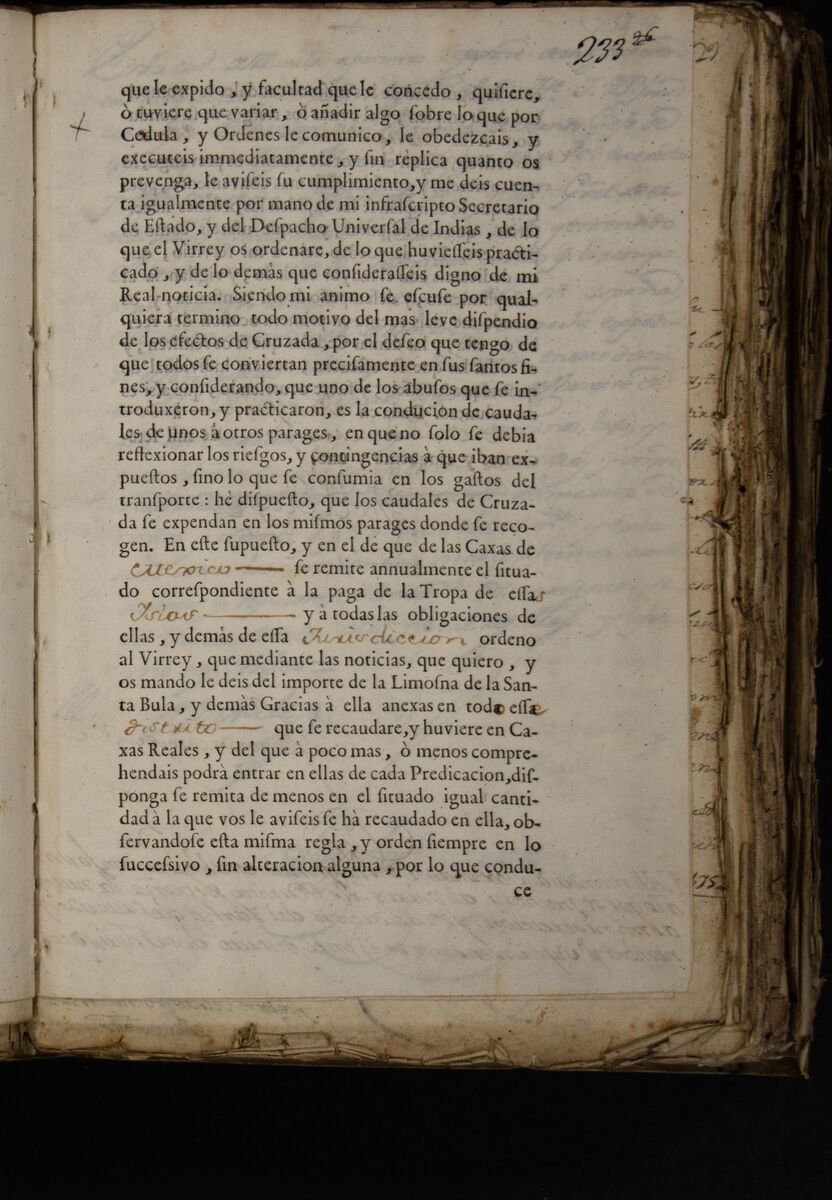 233 26
que le expido, y facultad que le concedo, quiſiere,
ò tuviere que variar, ò añadir algo ſobre lo que por
Cedula, y Ordenes le comunico, le obedezcais, y
executeis immediatamente, y ſin rèplica quanto os
prevenga, le aviſeis ſu cumplimiento, y me deis cuen-
ta igualmente por mano de mi infraſcripto Secretario
de Eſtado, y del Deſpacho Univerſal de Indias, de lo
que el Virrey os ordenare, de lo que huvieſſeis practi-
cado, y de lo demàs que conſideraſſeis digno de mi
Real noticia. Siendo mi animo ſe eſcuſe por qual-
quiera termino todo motivo del mas leve diſpendio
de los efectos de Cruzada, por el deſeo que tengo de
que todos ſe conviertan preciſamente en ſus ſantos fi-
nes, y conſiderando, que uno de los abuſos que ſe in-
troduxeron, y practicaron, es la condución de cauda-
les de unos à otros parages, en que no ſolo ſe debia
reflexionar los rieſgos, y contingencias à que iban ex-
pueſtos, ſino lo que ſe conſumia en los gaſtos del
tranſporte: hè diſpueſto, que los caudales de Cruza-
da ſe expendan en los miſmos parages donde ſe reco-
gen. En eſte ſupueſto, y en el de que de las Caxas de
Mexico ſe remite annualmente el ſitua-
do correſpondiente à la paga de la Tropa de eſſas
Islas y à todas las obligaciones de
ellas, y demás de eſſa Jurisdiccion ordeno
al Virrey, que mediante las noticias, que quiero, y
os mando le deis del importe de la Limoſna de la San-
ta Bula, y demàs Gracias à ella anexas en todo eſſe
distrito que ſe recaudare, y huviere en Ca-
xas Reales, y del que à poco mas, ò menos compre-
hendais podrà entrar en ellas de cada Predicacion, diſ-
ponga ſe remita de menos en el ſituado igual canti-
dad à la que vos le aviſeis ſe hà recaudado en ella, ob-
ſervandoſe eſta miſma regla, y orden ſiempre en lo
ſucceſsivo, ſin alteracion alguna, por lo que condu-
ce